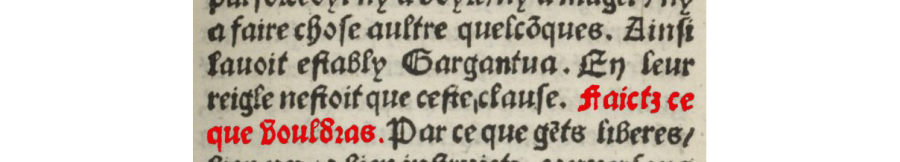 a faire chose aultre quelcõques. Ainsi
lauoit estably Gargantua. En leur
reigle nestoit que ceste clause. Faictz ce
que vouldras. Par ce que gẽts liberes/